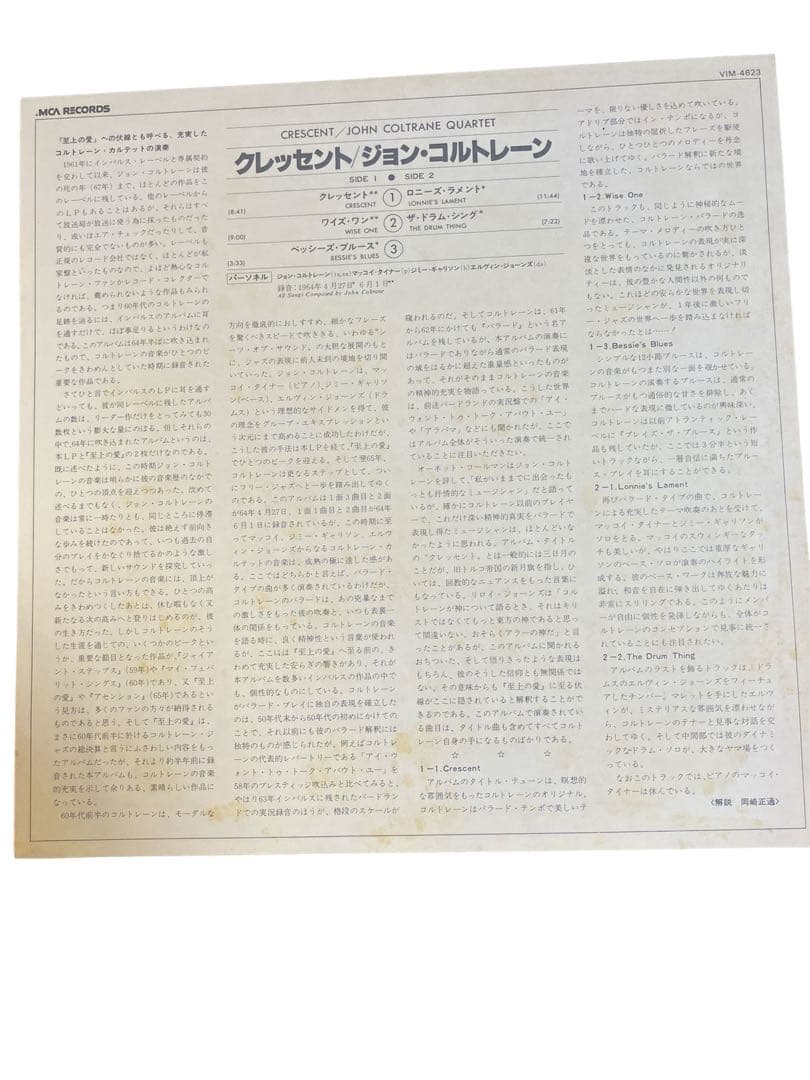 VIM-4623
.MCA RECORDS
CRESCENT/JOHN COLTRANE QUARTET
クレッセント/ジョン・コルトレーン
SIDE 1 ● SIDE 2
クレッセント** ① ロニーズ・ラメント*
(8:41) CRESCENT LONNIE'S LAMENT (11:44)
ワイズ・ワン** ② ザ・ドラム・シング*
(9:00) WISE ONE THE DRUM THING (7:22)
ベッシーズ・ブルース* ③
(3:33) BESSIE'S BLUES
パーソネル ジョン・コルトレーン(ts,ss)マッコイ・タイナー(p)ジミー・ギャリソン(b)エルヴィン・ジョーンズ(ds)
録音:1964年4月27日* 6月1日**
All Songs Composed by John Coltrane
『至上の愛』への伏線とも呼べる、充実した
コルトレーン・カルテットの演奏
1961年にインパルス・レーベルと専属契約
を交わして以来、ジョン・コルトレーンは彼
の死の年(67年)まで、ほとんどの作品をこ
のレーベルに残している。他のレーベルから
のLPもあることはあるが、それらはすべ
て放送局が放送に使う為に採ったものだった
り、或いはエア・チェックだったりして、音
質的にも完全でないものが多い。レーベルも
正規のレコード会社ではなく、ほとんどが私
家盤といったものなので、よほど熱心なコル
トレーン・ファンかレコード・コレクターで
なければ、薦められないような作品もみられ
るのである。つまり60年代のコルトレーンの
足跡を辿るには、インパルスのアルバムに耳
を通すだけで、ほぼ事足りるというわけなの
である。このアルバムは64年半ばに吹き込まれ
たもので、コルトレーンの音楽がひとつのピ
ークをきわめんとしていた時期に録音された
重要な作品である。
さてひと言でインパルスのLPに耳を通す
といっても、彼が同レーベルに残したアルバ
ムの数は、リーダー作だけをとってみても30
数枚という膨大な量にのぼる。但しそれらの
中で、64年に吹き込まれたアルバムというのは、
本LPと『至上の愛』の2枚だけなのである。
既に述べたように、この時期ジョン・コルト
レーンの音楽は明らかに彼の音楽歴のなかで
の、ひとつの頂点を迎えつつあった。改めて
述べるまでもなく、ジョン・コルトレーンの
音楽は常に一時たりとも、同じところに停滞
していることがなかった。彼は絶えず前向き
な歩みを続けたのであって、いつも過去の自
分のプレイをかなぐり捨てるかのような激し
さでもって、新しいサウンドを探究していっ
た。だからコルトレーンの音楽には、頂上が
なかったという言い方もできる。ひとつの高
みをきわめつくしたあとは、休む暇もなく又
新たなる次の高みへと登りはじめるのが、彼
の生き方だった。しかしコルトレーンのそう
した生涯を通じての、いくつかのピークとい
うか、重要な節目となった作品が、『ジャイア
ント・ステップス』(59年)や『マイ・フェバ
リット・シングス』(60年)であり、又『至上
の愛』や『アセンション』(65年)であるとい
う見方は、多くのファンの方々が納得される
ものであると思う。そして『至上の愛』は、
まさに60年代前半に於けるコルトレーン・ジ
ャズの総決算と言うにふさわしい内容をもっ
たアルバムだったが、それより約半年前に録
音された本アルバムも、コルトレーンの音楽
的充実を示して余りある、素晴らしい作品に
なっている。
60年代前半のコルトレーンは、モーダルな
方向を徹底的におしすすめ、細かなフレーズ
を驚くべきスピードで吹ききる、いわゆる“シ
ーツ・オブ・サウンド”の大胆な展開のもと
に、ジャズの表現に前人未到の境地を切り開
いていった。ジョン・コルトレーンは、マッ
コイ・タイナー(ピアノ)、ジミー・ギャリソ
ン(ベース)、エルヴィン・ジョーンズ(ドラ
ムス)という理想的なサイドメンを得て、彼
の理念をグループ・エキスプレッションとい
う次元にまで高めることに成功したわけだが、
こうした彼の手法は本LPを経て、『至上の愛』
でひとつのピークを迎える。そして翌65年、
コルトレーンは更なるステップとして、つい
にフリー・ジャズへと一歩を踏み出してゆく
のである。このアルバムは1面3曲目と2面
が64年4月27日、1面1曲目と2曲目が64年
6月1日に録音されているが、この時期に至
ってマッコイ、ジミー・ギャリソン、エルヴ
ィン・ジョーンズからなるコルトレーン・カ
ルテットの音楽は、成熟の極に達した感があ
る。ここではどちらかと言えば、バラード・
タイプの曲が多く演奏されているわけだが、
コルトレーンのバラードは、あの兇暴なまで
の激しさをもった彼の吹奏と、いつも表裏一
体の関係をもっている。コルトレーンの音楽
を語る時に、良く精神性という言葉が使われ
るが、ここには『至上の愛』へ至る前の、き
わめて充実した安らぎの響きがあり、それが
本アルバムを数多いインパルスの作品の中で
も、個性的なものにしている。コルトレーン
がバラード・プレイに独自の表現を確立した
のは、50年代末から60年代の初めにかけての
ことで、それ以前にも彼のバラード解釈には
独特のものが感じられたが、例えばコルトレ
ーンの代表的レパートリーである「アイ・ウ
ォント・トゥ・トーク・アバウト・ユー」を
58年のプレスティッジ吹込みと比べてみると、
やはり63年インパルスに残されたバードラン
ドでの実況録音のほうが、格段のスケールが
窺われるのだ。そしてコルトレーンは、61年
から62年にかけても『バラード』という名ア
ルバムを残しているが、本アルバムの演奏に
はバラードでありながら通常のバラード表現
の域をはるかに超えた重量感といったものが
あって、それがそのままコルトレーンの音楽
の精神的充実を物語っている。こうした世界
は、前述バードランドの実況盤での「アイ・
ウォント・トゥ・トーク・アバウト・ユー」
や「アラバマ」などにも聞かれたが、ここで
はアルバム全体がそういった演奏で統一され
ていることに注目いただきたい。
オーネット・コールマンはジョン・コルト
レーンを評して、「私がいままでに出会ったも
っとも抒情的なミュージシャン」だと語って
いるが、確かにコルトレーン以前のプレイヤ
ーで、これだけ深い精神的真実をバラードで
表現し得たミュージシャンは、ほとんどいな
かったように思われる。アルバム・タイトル
の“クレッセント”とは一般的には三日月の
ことだが、旧トルコ帝国の新月旗を指し、ひ
いては、回教的なニュアンスをもった言葉に
もなっている。リロイ・ジョーンズは「コル
トレーンが神について語るとき、それはキリ
ストではなくてもっと東方の神であると思っ
て間違いない。おそらくアラーの神だ」と言
ったことがあるが、このアルバムに聞かれる
おちついた、そして悟りきったような表現は
もちろん、彼のそうした信仰とも無関係では
ない。その意味からも『至上の愛』に至る伏
線がここに隠されていると解釈することがで
きるのである。このアルバムで演奏されてい
る曲目は、タイトル曲も含めてすべてコルト
レーン自身の手になるものばかりである。
☆ ☆ ☆
1－1.Crescent
アルバムのタイトル・テューンは、瞑想的
な雰囲気をもったコルトレーンのオリジナル。
コルトレーンはバラード・テンポで美しいテ
ーマを、限りない優しさを込めて吹いている。
アドリブ部分ではイン・テンポになるが、コ
ルトレーンは独特の屈折したフレーズを駆使
しながら、ひとつひとつのメロディーを丹念
に歌い上げてゆく。バラード解釈に新たな境
地を確立した、コルトレーンならではの世界
である。
1－2.Wise One
このトラックも、同じように神秘的なムー
ドを漂わせた、コルトレーン・バラードの逸
品である。テーマ・メロディーの吹き方ひと
つをとっても、コルトレーンの表現が実に深
遠な世界をもっているのに驚かされるが、淡
淡とした表情のなかに発見されるオリジナリ
ティーは、彼の豊かな人間性以外の何もので
もない。これほどの安らかな世界を表現し切
ったミュージシャンが、1年後に激しいフリ
ー・ジャズの世界へ一歩を踏み込まなければ
ならなかったとは……!
1－3.Bessie's Blues
シンプルな12小節ブルースは、コルトレー
ンの音楽がもつまた別な一面を覗かせている。
コルトレーンの演奏するブルースは、通常の
ブルースがもつ通俗的な甘さを排除し、あく
までハードな表現に徹しているのが興味深い。
コルトレーンは以前アトランティック・レー
ベルに『プレイズ・ザ・ブルース』という作
品も残していたが、ここでは3分半という短
いトラックながら、一層自信に満ちたブルー
ス・プレイを耳にすることができる。
2－1.Lonnie's Lament
再びバラード・タイプの曲で、コルトレー
ンによる充実したテーマ吹奏のあとを受けて、
マッコイ・タイナーとジミー・ギャリソンが
ソロをとる。マッコイのスウィンギーなタッ
チも美しいが、やはりここでは重厚なギャリ
ソンのベース・ソロが演奏のハイライトを形
成する。彼のベース・ワークは奔放な魅力に
溢れ、和音を自在に弾き出してゆくあたりは
非常にスリリングである。このようにメンバ
ーが自由に個性を発揮しながらも、全体がコ
ルトレーンのコンセプションで見事に統一さ
れていることにも注目されたい。
2－2.The Drum Thing
アルバムのラストを飾るトラックは、ドラ
ムスのエルヴィン・ジョーンズをフィーチュ
アしたナンバー。マレットを手にしたエルヴ
ィンが、ミステリアスな雰囲気を漂わせなが
ら、コルトレーンのテナーと見事な対話を交
わしてゆく。そして中間部では彼のダイナミ
ックなドラム・ソロが、大きなヤマ場をつく
っている。
なおこのトラックでは、ピアノのマッコイ・
タイナーは休んでいる。
〈解説 岡崎正通〉